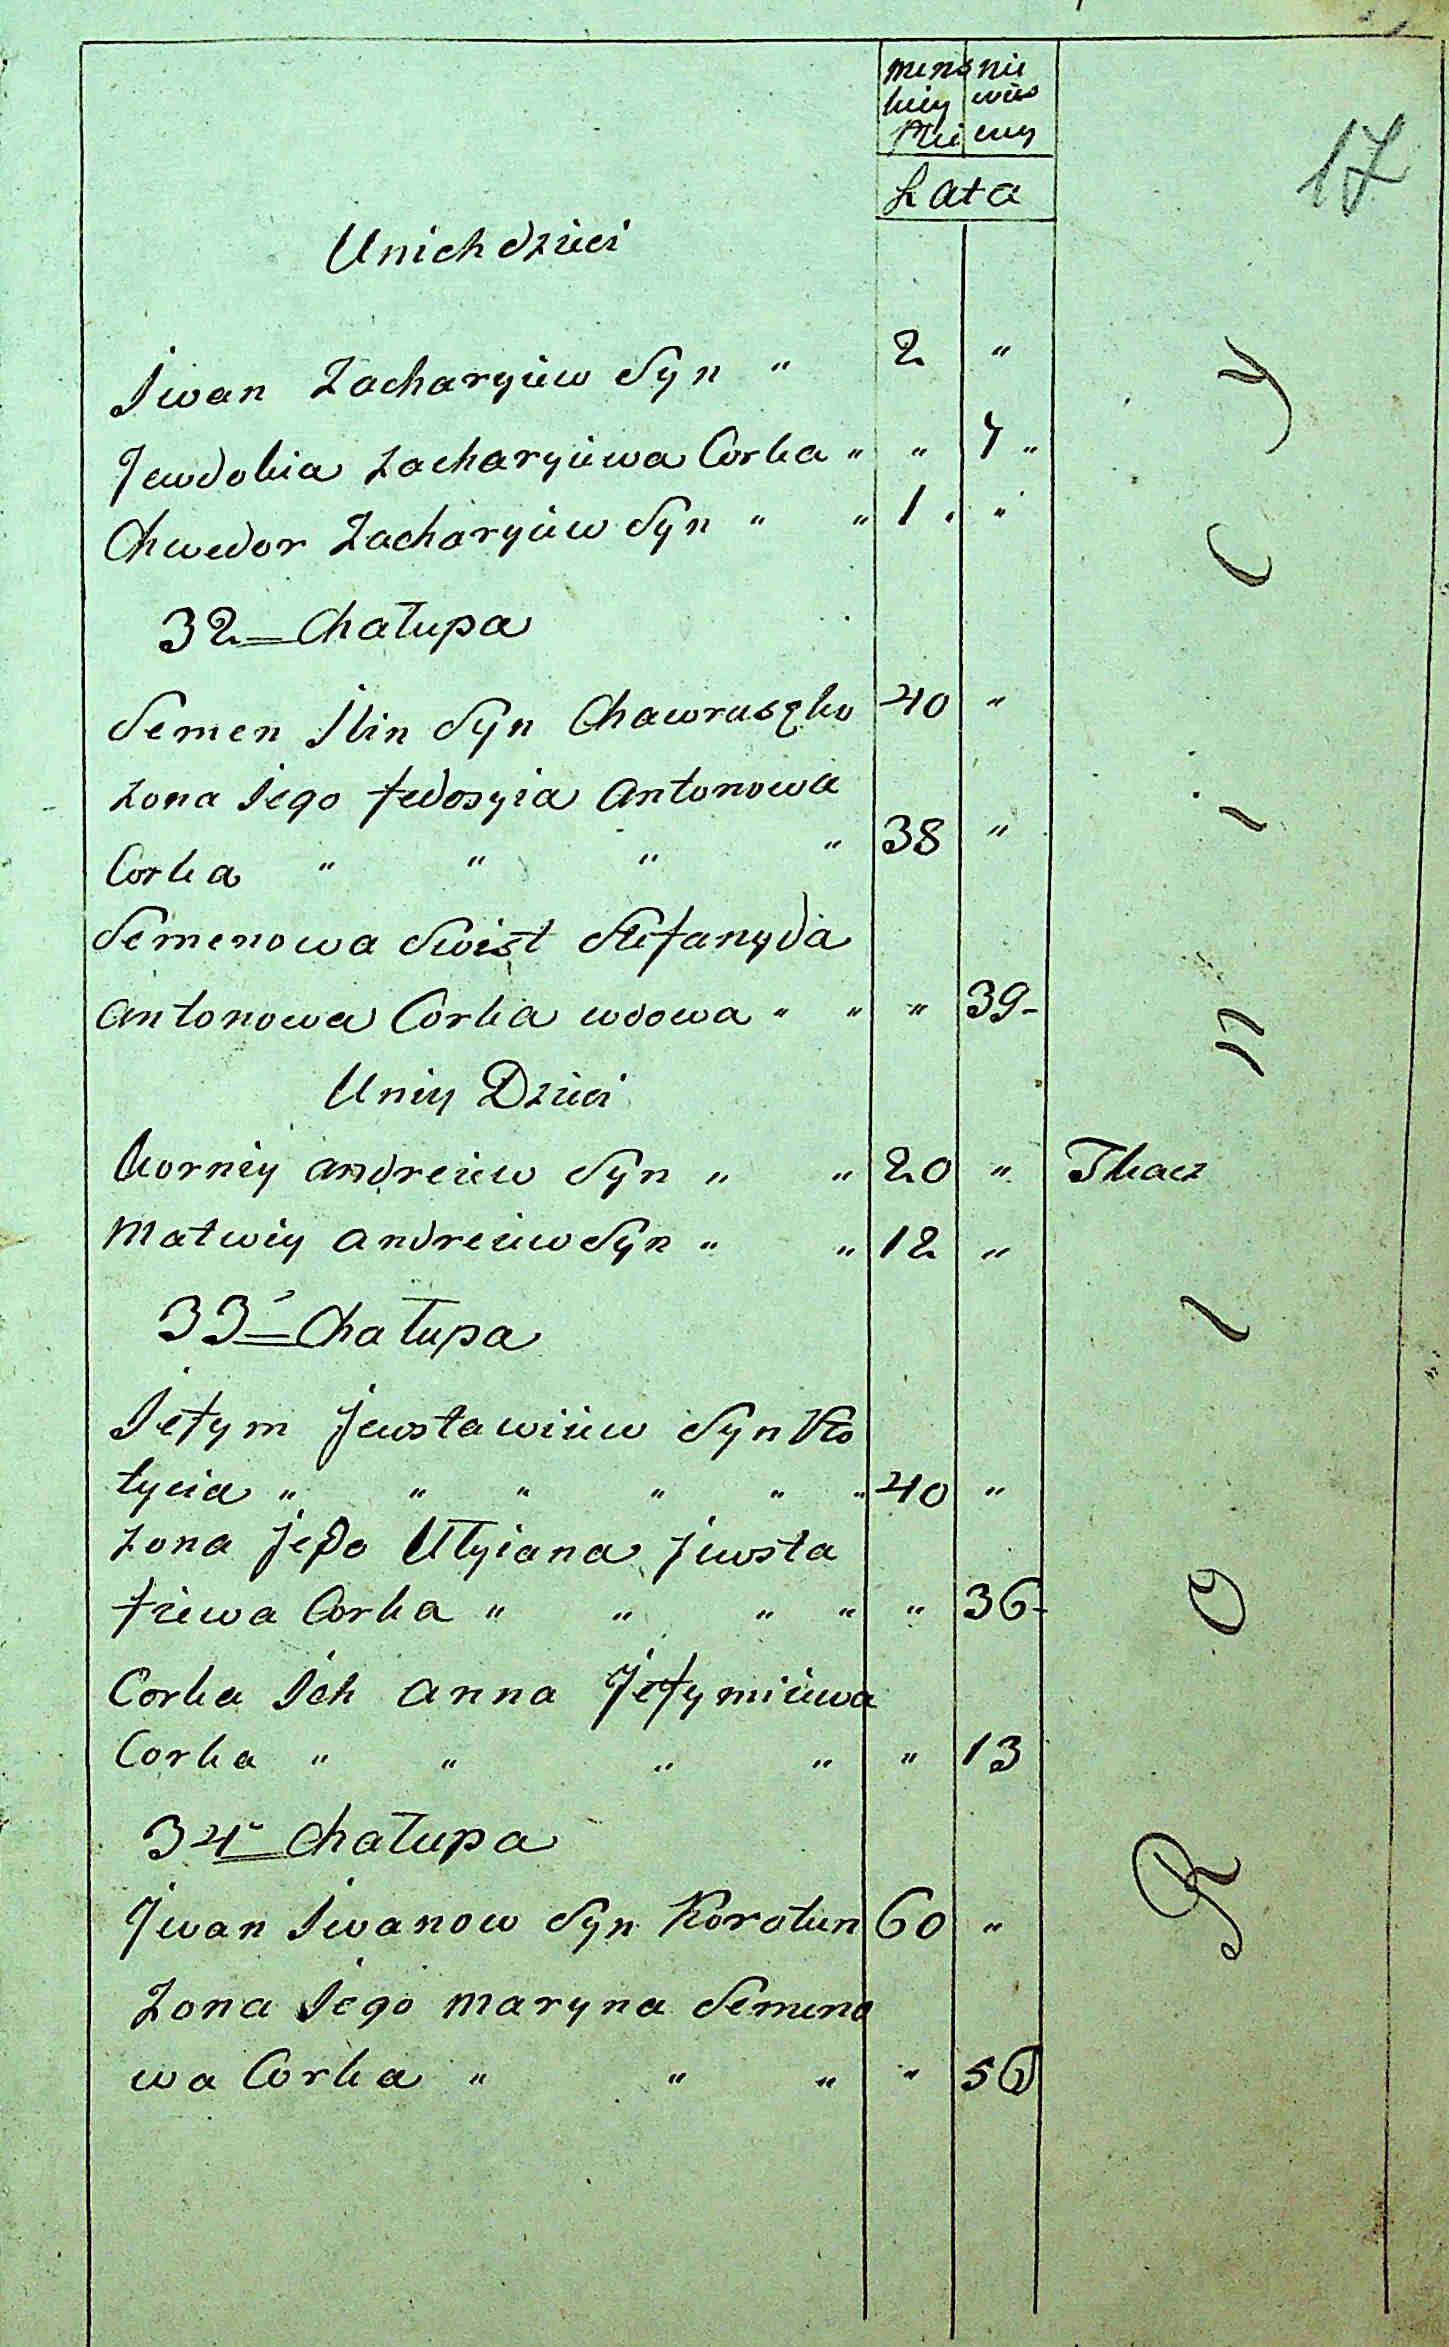 mens nie
kiey wies
Plci ciey
Lata
17
Unich dzieci
Iwan Zacharyiew Syn " 2 "
Jewdokia Zacharyiewa Corka " " 7 "
Chwedor Zacharyiew Syn " " 1 " "
32 Chałupa
Semen Ilin Syn Chawruszko 40 "
Zona Jego Fedosyia Antonowa
Corka " " " " 38 "
Semenowa Swist Stefanyda
Antonowa Corka wdowa " " " 39-
Uniey Dzieci
Korniey Andreiew Syn " " 20 " Tkacz
Matwiey Andreiew Syn " " 12 "
33 Chałupa
Jefym Jewstawiiew Syn Ko
tycia " " " " " " 40 "
Zona Jego Ulyiana Jewsta
fiewa Corka " " " " " 36-
Corka Ich Anna Jefymiiewa
Corka " " " " " 13
34 Chałupa
Iwan Iwanow Syn Korotun 60 "
Zona Jego Maryna Semeno
wa Corka " " " " 56
Rolnicy